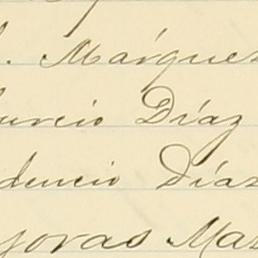 . Márquez
urcio Díaz
dencio Díaz
goras Mar